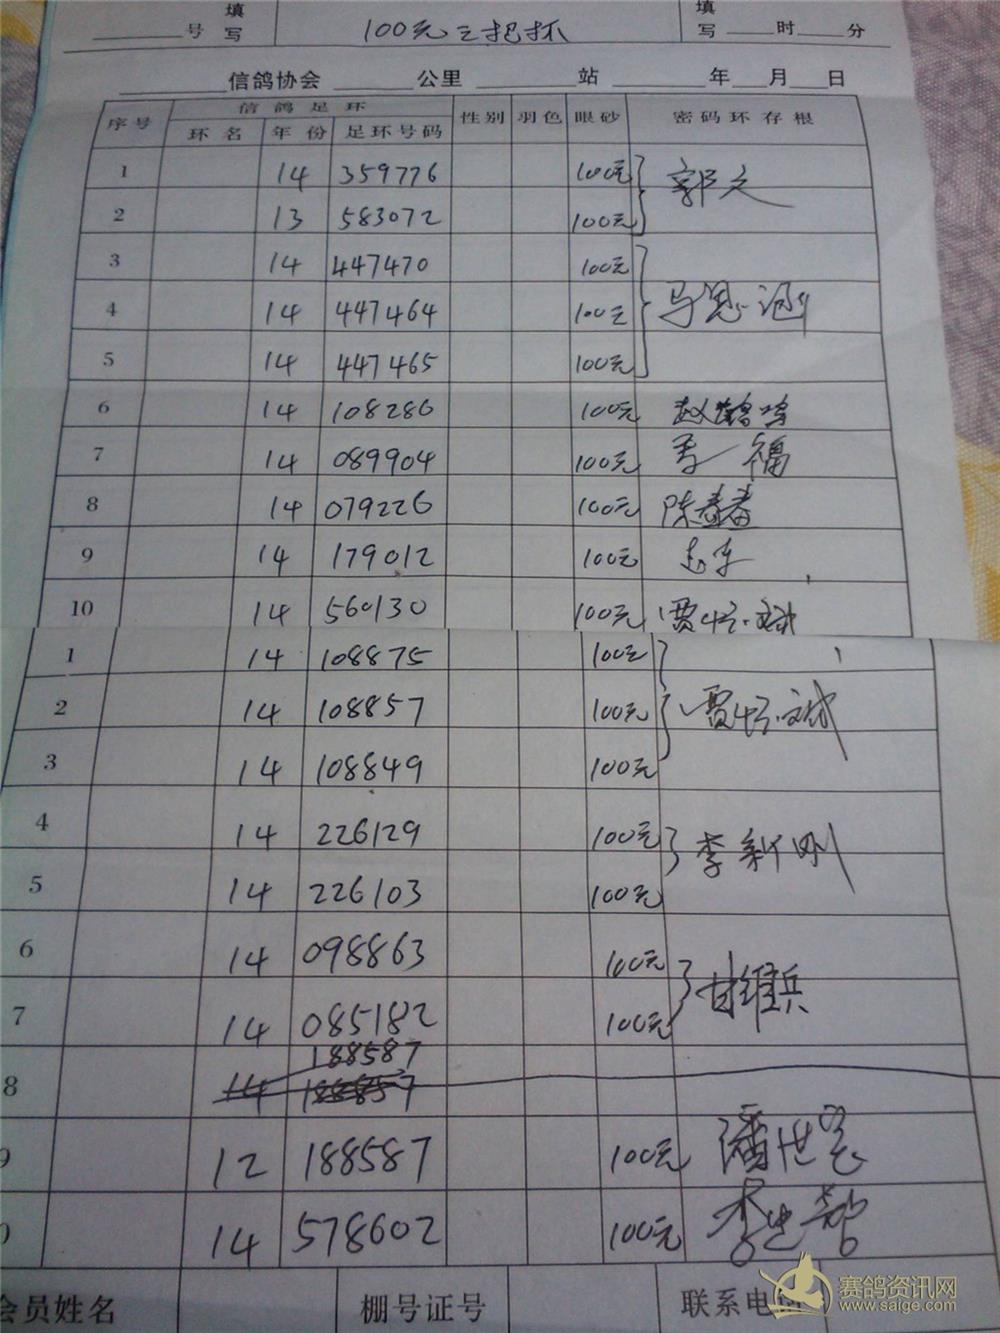 ______号 填写 100元三把抓 填写 ____时____分
________信鸽协会 ______公里 ______站 ______年___月___日
序号 信鸽足环 性别 羽色 眼砂 密码环存根
环名 年份 足环号码
1 14 359776 100元 郭文
2 13 583072 100元
3 14 447470 100元
4 14 447464 100元 马恩涵
5 14 447465 100元
6 14 108286 100元 赵鹤鸣
7 14 089904 100元 李一福
8 14 079226 100元 陈春
9 14 179012 100元
10 14 560130 100元 贾 斌
1 14 108875 100元
2 14 108857 100元 贾 斌
3 14 108849 100元
4 14 226129 100元 李新刚
5 14 226103 100元
6 14 098863 100元 甘维兵
7 14 085182 100元
188587
8 14 188857
9 12 188587 100元 潘世
14 578602 100元 李
会员姓名 棚号证号 联系电话
赛鸽资讯网
www.saige.com